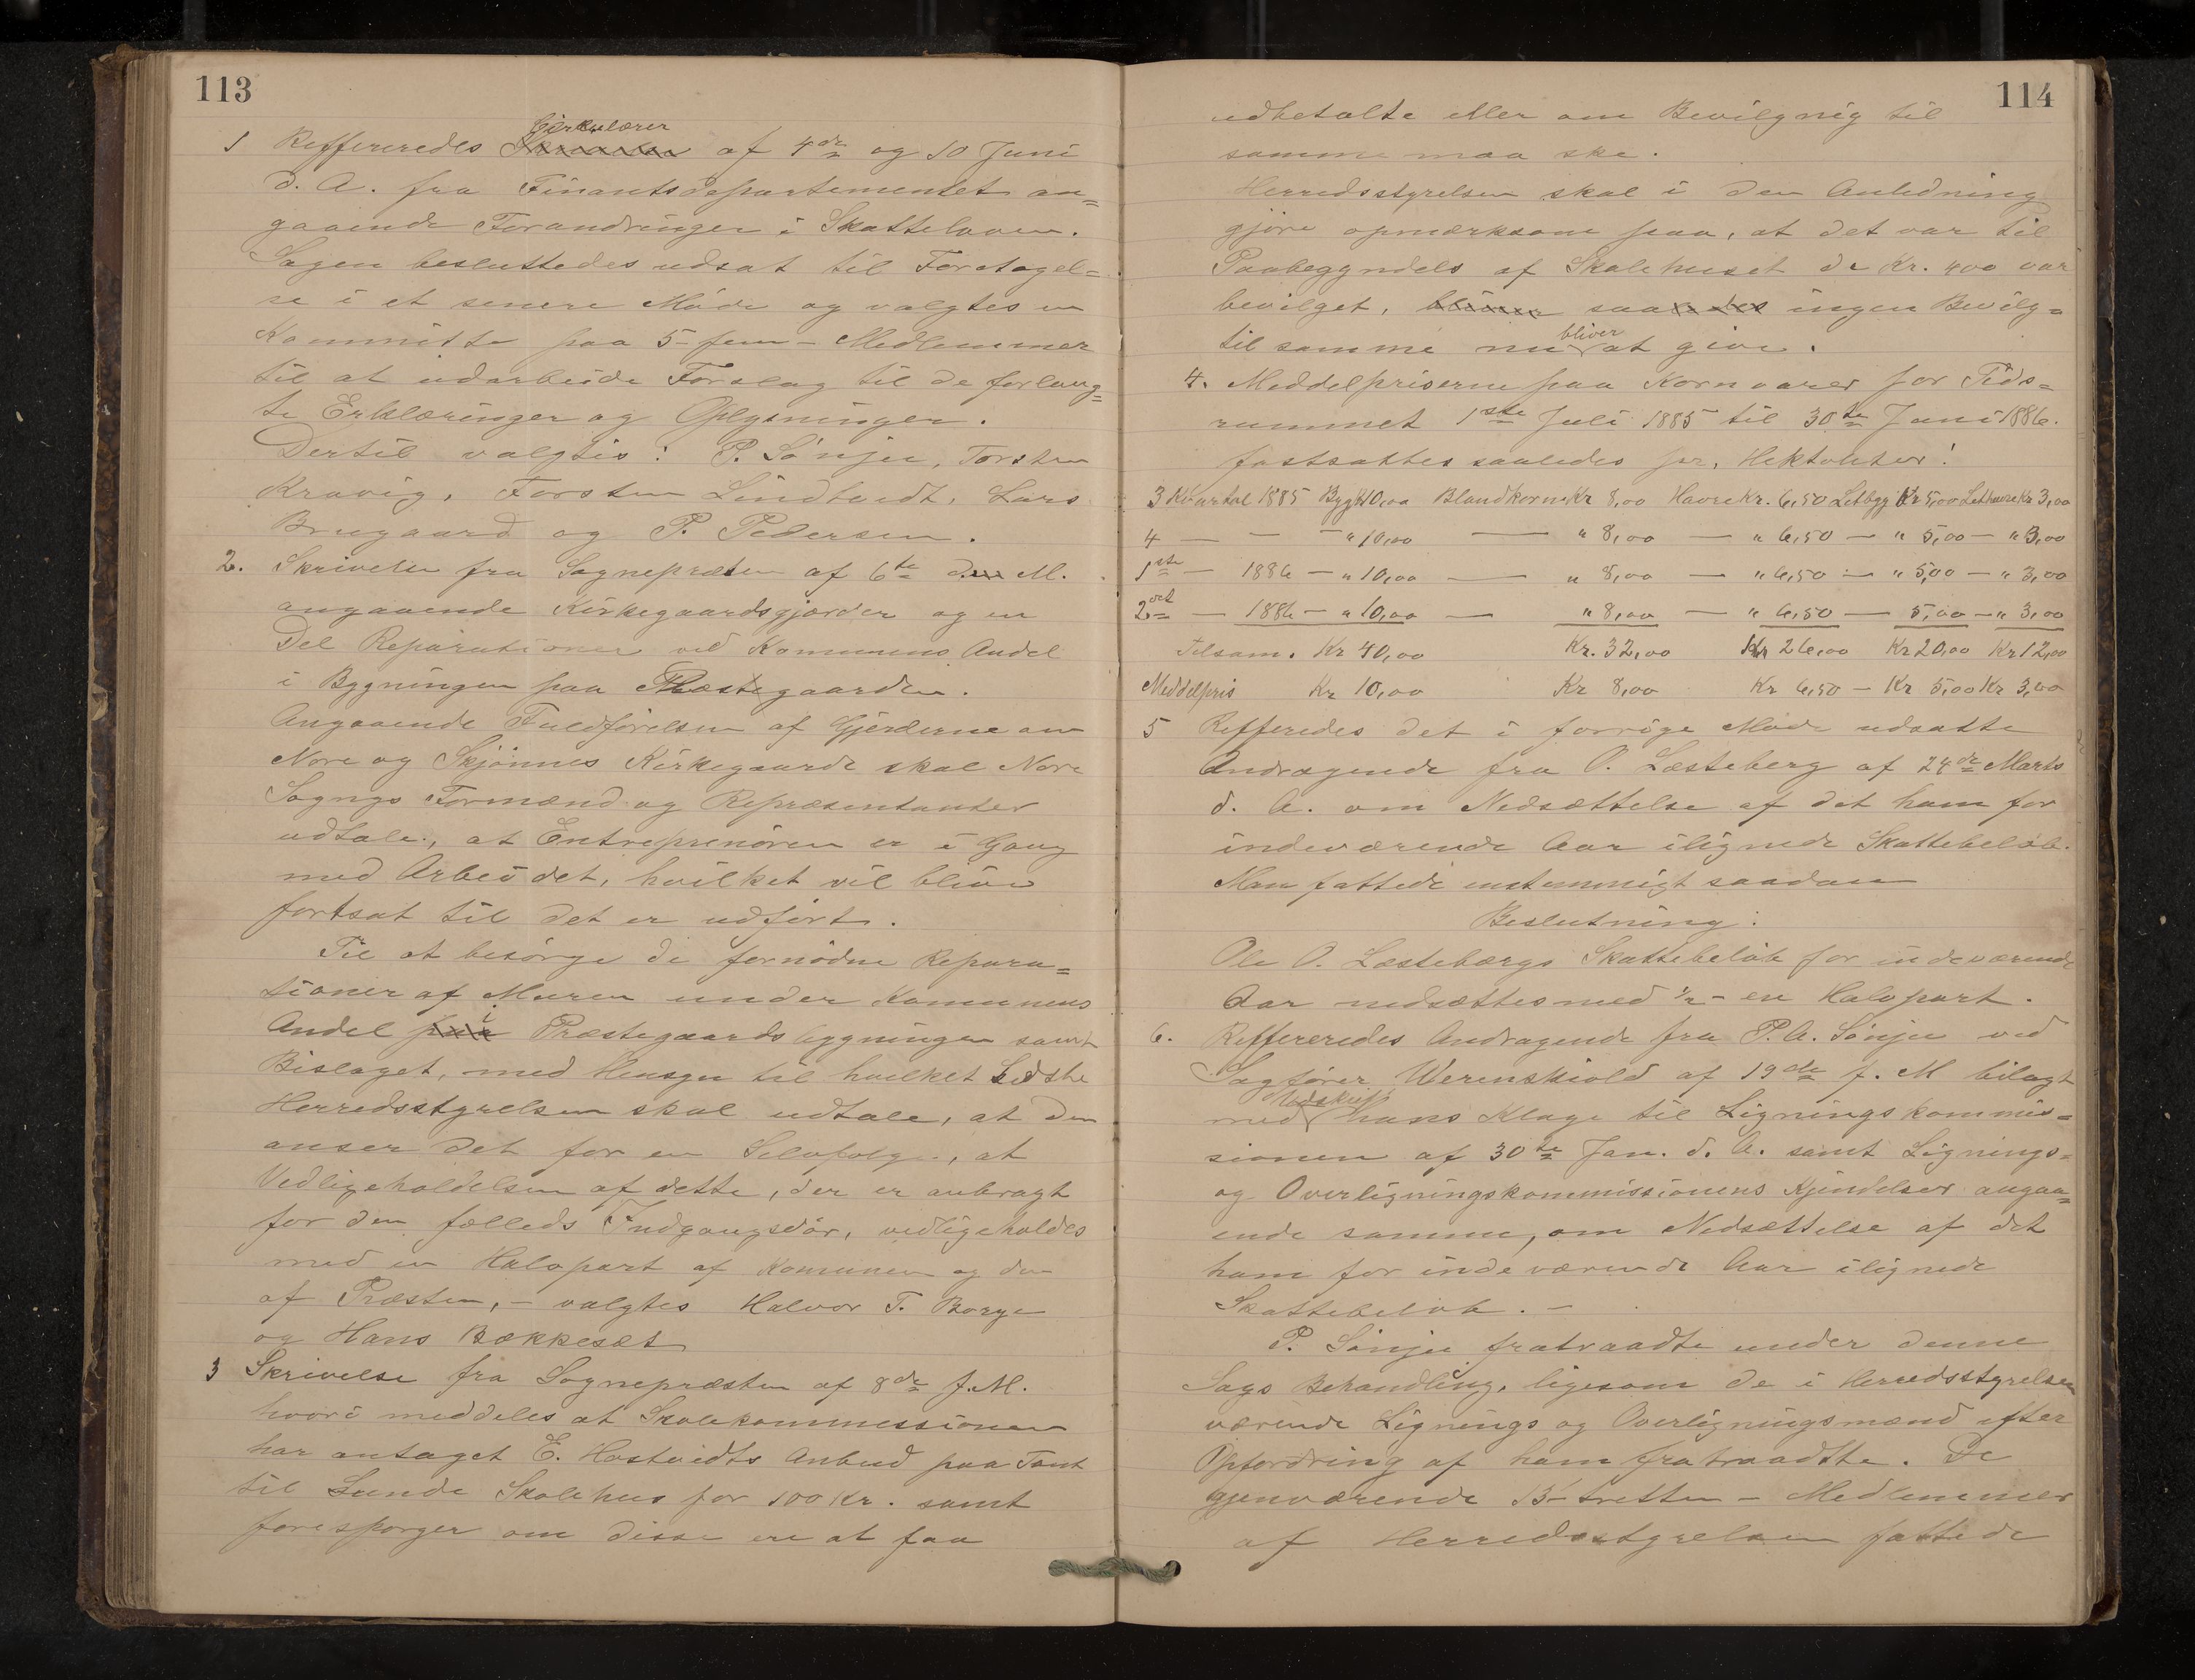 113
1 Reffereredes Cirkulærer af 4de og 10 Juni
d. A. fra Finantsdepartementet an=
gaaende Forandringer i Skatteloven.
Sagen besluttedes udsat til Foretagel=
se i et senere Møde og valgtes en
Kommitte paa 5 - fem - Medlemmer
til at udarbeide Forslag til de forlang=
te Erklæringer og Oplysninger.
Dertil valgtes: P. Sønju, Torsten
Kravig, Torsten Lindtvedt, Lars
Brugaard og P. Pedersen.
2. Skrivelse fra Sognepræsten af 6te d. M.
angaaende Kirkegaardsgjærder og en
Del Reparationer ved Kommunens Andel
i Bygningen paa Præstegaarden.
Angaaende Fuldførelsen af Gjerderne om
Nore og Skjønnes Kirkegaarde skal Nore
Sogngs Formænd og Repræsentanter
udtale, at Entreprenøren er i Gang
med Arbeidet, hvilket vil blive
fortsat til det er udført.
Til at besørge de fornødne Repara=
tioner af Muren under Komunens
Andel i Præstegaardsbygningen samt
Bislaget, med Hensyn til hvilket sidste
Herredsstyrelsen skal udtale, at den
anser det for en Selvfølge, at
Vedligeholdelsen af dette, der er anbragt
for den fælleds Indgangsdør, vedligeholdes
med en Halvpart af Komunen og den
af Præsten, - valgtes Halvor T. Borge
og Hans Bækkesæt
3 Skrivelse fra Sognepræsten af 8de f. M.
hvori meddeles at Skolekommessionen
har antaget E. Hostvedts Anbud paa Tomt
til Lande Skolehus for 100 Kr. samt
forespørger om disse ere at faa
114
udbetalte eller om Bevilgnig til
samme maa ske.
Herredsstyrelsen skal i den Anledning
gjøre opmærksom paa, at det var til
Paabegyndels af Skolehuset de Kr. 400 var
bevilget, saa ingen Bevilg=
til samme nu bliver at give.
4. Meddelpriserne paa Kornvarer for Tids=
rummet 1ste Juli 1885 til 30te Juni 1886.
fastsattes saaledes pr. Hektoliter:
3 Kvartal 1885 Byg Kr 10,00 Blandkorn Kr 8,00 Havre Kr. 6,50 Letbyg Kr 5,00 Lethavre Kr 3,00
4 — — — " 10,00 — " 8,00 — " 6,50 — " 5,00 — " 3,00
1ste — 1886 — " 10,00 — " 8,00 — " 6,50 — " 5,00 — " 3,00
2det — 1886 — " 10,00 — " 8,00 — " 6,50 — 5,00 — " 3,00
Tilsam. Kr 40,00 Kr. 32,00 Kr 26,00 Kr 20,00 Kr 12,00
Meddelpris Kr 10,00 Kr 8,00 Kr 6,50 — Kr 5,00 Kr 3,00
5 Refferedes det i forrige Møde udsatte
Andragende fra O. Læsteberg af 24de Marts
d. A. om Nedsættelse af det ham for
indeværende Aar ilignede Skattebeløb.
Man fattede enstemmigt saadan
Beslutning:
Ole O. Læstebergs Skattebeløb for indeværende
Aar nedsættes med 1/2 - en Halvpart.
6. Reffereredes Andragende fra P. A. Sønju ved
Sagfører Werenskiold af 19de f. M bilagt
med hans Klage til Ligningskommis=
sionen af 30te Jan. d. A. samt Lignings=
og Overligningskommissionens Kjendelser angaa=
ende samme, om Nedsættelse af det
ham for indeværende Aar ilignede
Skattebeløb. -
P. Sønju fratraadte under denne
Sags Behandling, ligesom de i Herredsstyrelsen
værende Lignings og Overligningsmænd efter
Opfordring af ham fratraadtte. De
gjenværende 13 - tretten - Medlemmer
af Herredsstyrelsen fattede